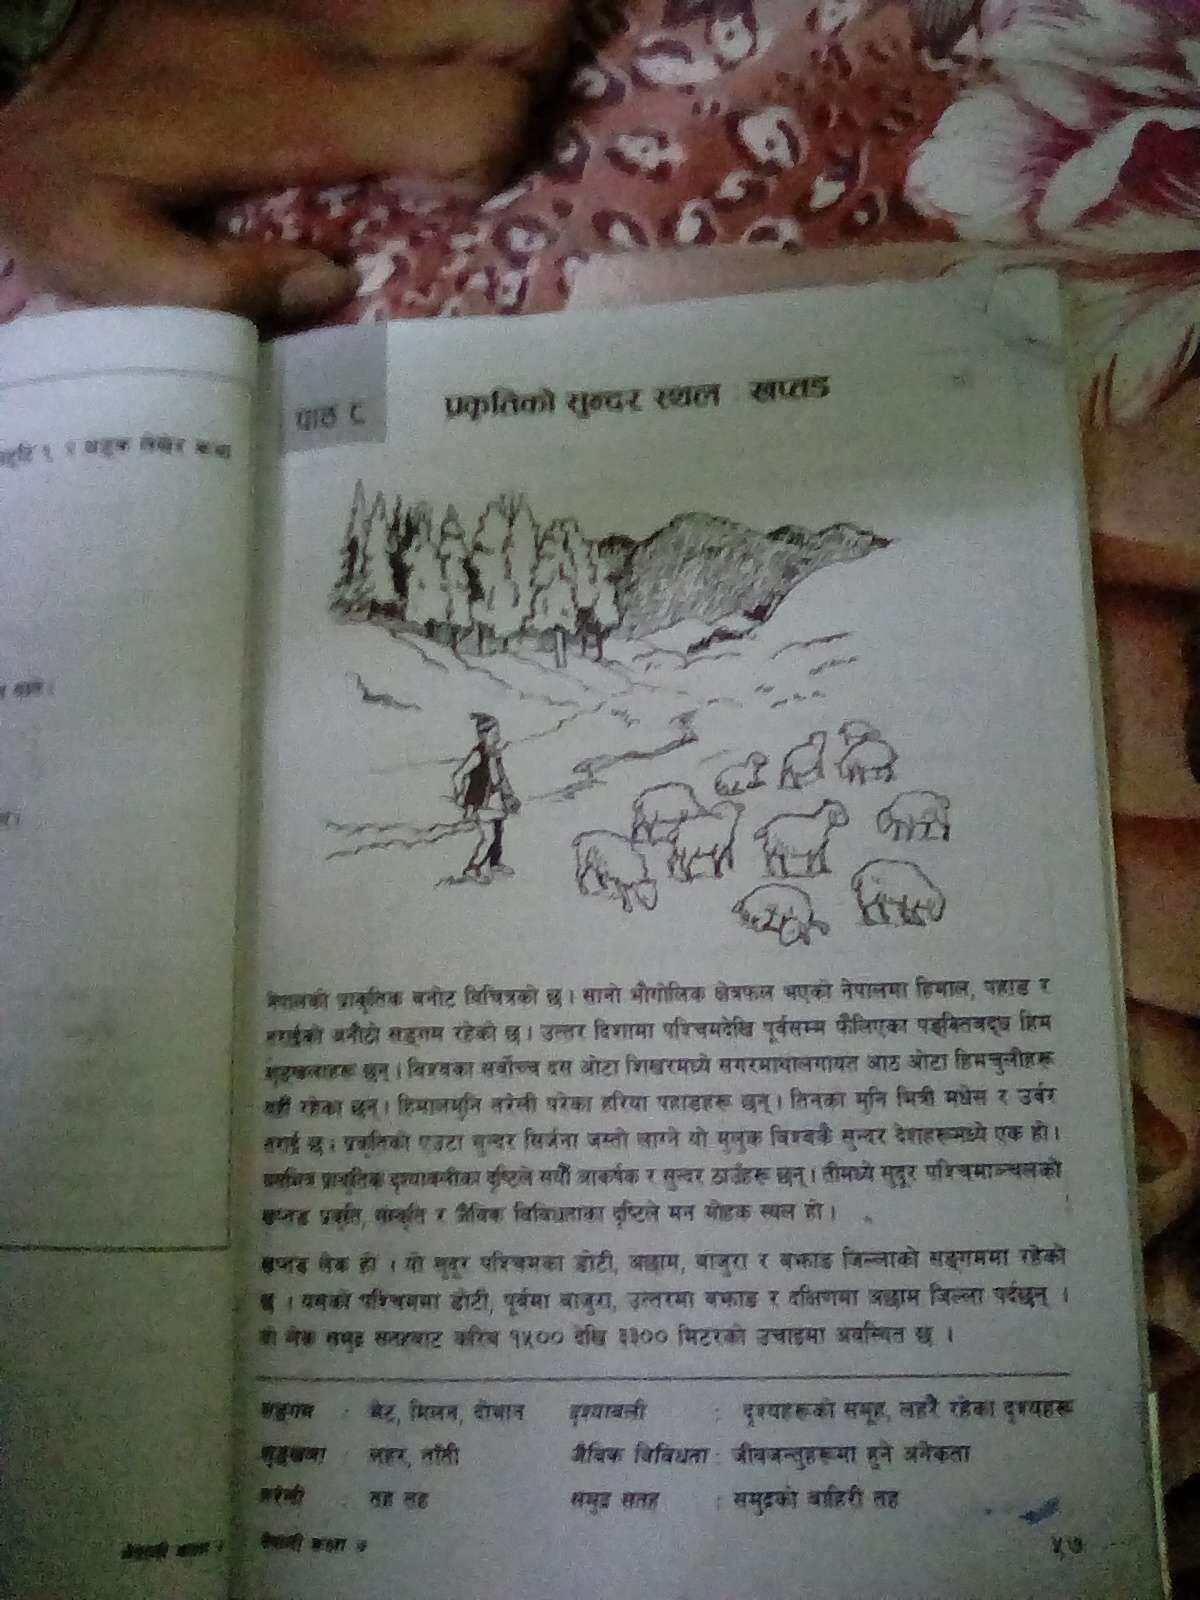 पाठ ८
प्रकृतिको सुन्दर स्थल : खप्तड
नेपालको प्राकृतिक बनोट विचित्रको छ । सानो भौगोलिक क्षेत्रफल भएको नेपालमा हिमाल, पहाड र
तराईको अनौठो सङ्गम रहेको छ । उत्तर दिशामा पश्चिमदेखि पूर्वसम्म फैलिएका पङ्क्तिबद्ध हिम
शृङ्खलाहरू छन् । विश्वका सर्वोच्च दस ओटा शिखरमध्ये सगरमाथालगायत आठ ओटा हिमचुलीहरू
यहीँ रहेका छन् । हिमालमुनि तरेली परेका हरिया पहाडहरू छन् । तिनका मुनि भित्री मधेस र उर्वर
तराई छ । प्रकृतिको एउटा सुन्दर सिर्जना जस्तो लाग्ने यो मुलुक विश्वकै सुन्दर देशहरूमध्ये एक हो ।
प्राकृतिक दृश्यावलीका दृष्टिले सयौँ आकर्षक र सुन्दर ठाउँहरू छन् । तीमध्ये सुदूर पश्चिमाञ्चलको
खप्तड प्रकृति, संस्कृति र जैविक विविधताका दृष्टिले मन मोहक स्थल हो ।
खप्तड लेक हो । यो सुदूर पश्चिमका डोटी, अछाम, बाजुरा र बझाङ जिल्लाको सङ्गममा रहेको
छ । यसको पश्चिममा डोटी, पूर्वमा बाजुरा, उत्तरमा बझाङ र दक्षिणमा अछाम जिल्ला पर्दछन् ।
यो लेक समुद्र सतहबाट करिब १५०० देखि ३३०० मिटरको उचाइमा अवस्थित छ ।
सङ्गम : भेट, मिलन, दोभान दृश्यावली : दृश्यहरूको समूह, लहरै रहेका दृश्यहरू
शृङ्खला : लहर, ताँती जैविक विविधता : जीवजन्तुहरूमा हुने अनेकता
तरेली : तह तह समुद्र सतह : समुद्रको बाहिरी तह
नेपाली कक्षा ७
५७